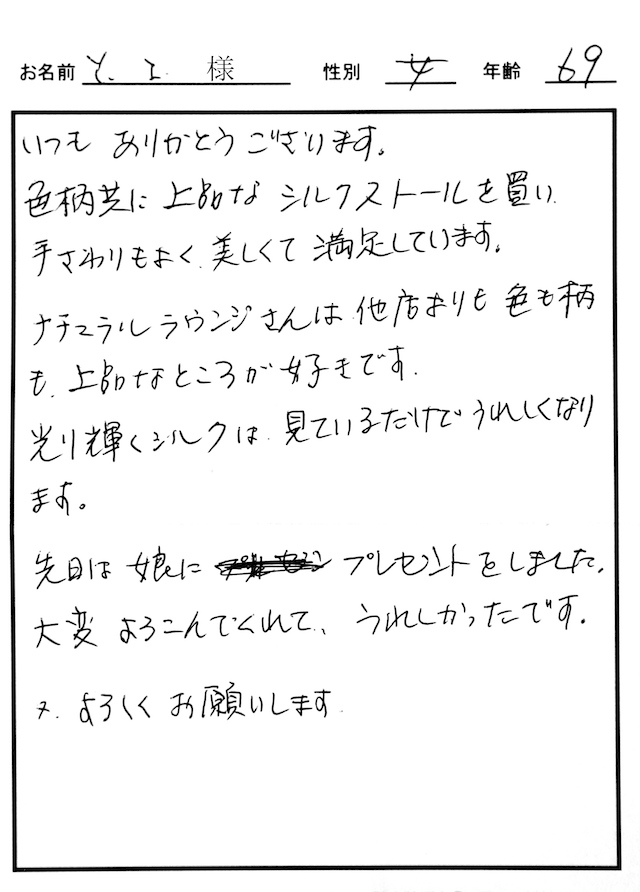 お名前 Y. I. 様 性別 女 年齢 69
いつも ありがとうございます。
色柄共に 上品な シルクストールを買い
手ざわりもよく、美しくて 満足しています。
ナチュラルラウンジさんは 他店よりも 色も柄
も、上品なところが好きです。
光り輝くシルクは、見ているだけで うれしくなり
ます。
先日は 娘に プレゼントをしました。
大変 よろこんでくれて、うれしかったです。
又、よろしく お願いします。